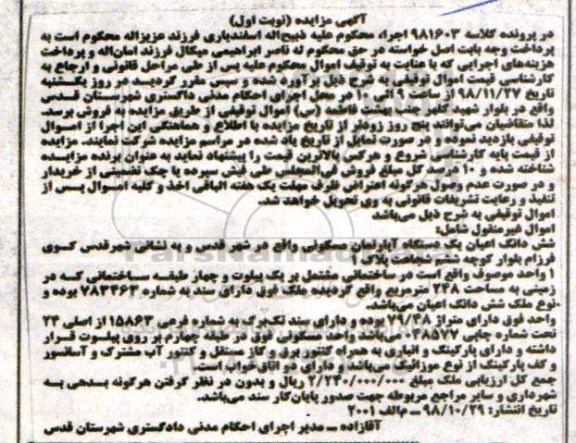 آگهی مزایده (نوبت اول)
در پرونده کلاسه ۹۸۱۶۰۳ اجراء محکوم علیه ذبیح‌اله اسفندیاری فرزند عزیزاله محکوم است به
پرداخت وجه بابت اصل خواسته در حق محکوم له ناصر ابراهیمی میکال فرزند امان‌اله و پرداخت
هزینه‌های اجرایی که با عنایت به توقیف اموال محکوم علیه پس از طی مراحل قانونی و ارجاع به
کارشناسی قیمت اموال توقیفی به شرح ذیل برآورده شده و سپس مقرر گردید در روز یکشنبه
تاریخ ۹۸/۱۱/۲۷ از ساعت ۹ الی ۱۰ در محل اجرای احکام مدنی دادگستری شهرستان قدس
واقع در بلوار شهید کلهر جنب بهشت فاطمه (س) اموال توقیفی از طریق مزایده به فروش برسد.
لذا متقاضیان می‌توانند پنج روز زودتر از تاریخ مزایده با اطلاع و هماهنگی این اجرا از اموال
توقیفی بازدید نموده و در صورت تمایل از تاریخ یاد شده در مراسم مزایده شرکت نمایند. مزایده
از قیمت پایه کارشناسی شروع و هرکس بالاترین قیمت را پیشنهاد نماید به عنوان برنده مزایده
شناخته شده و ۱۰ درصد کل مبلغ فروش فی‌المجلس طی فیش سپرده یا چک تضمینی از خریدار
و در صورت عدم وصول هرگونه اعتراض ظرف مهلت یک هفته الباقی اخذ و کلیه اموال پس از
تنفیذ و رعایت تشریفات قانونی به وی تحویل خواهد شد.
اموال توقیفی به شرح ذیل می‌باشد
اموال غیرمنقول شامل:
شش دانگ اعیان یک دستگاه آپارتمان مسکونی واقع در شهر قدس و به نشانی شهرقدس کوی
فرزام بلوار کوچه ششم شجاعت پلاک ۱
۱ واحد موصوف واقع است در ساختمانی مشتمل بر یک پیلوت و چهار طبقه ساختمانی که در
زمینی به مساحت ۲۴۸ مترمربع واقع گردیده ملک فوق دارای سند به شماره ۷۸۳۴۶۳ بوده و
نوع ملک شش دانگ اعیان می‌باشد.
واحد فوق دارای متراژ ۷۹/۴۸ بوده و دارای سند تک‌برگ به شماره فرعی ۱۵۸۶۳ از اصلی ۲۴
تحت شماره چاپی ۰۳۸۵۷۷ می‌باشد واحد مسکونی فوق در طبقه چهارم بر روی پیلوت قرار
داشته و دارای پارکینگ و انباری به همراه کنتور برق و گاز مستقل و کنتور آب مشترک و آسانسور
و کف پارکینگ از نوع موزائیک می‌باشد/ و دارای دو اتاق خواب است.
جمع کل ارزیابی ملک مبلغ ۲/۲۴۰/۰۰۰/۰۰۰ ریال و بدون در نظر گرفتن هرگونه بدهی به
شهرداری و سایر مراجع مربوطه جهت صدور پایان‌کار سند می‌باشد.
تاریخ انتشار: ۹۸/۱۰/۲۹ – م‌الف ۲۰۰۱
آقازاده – مدیر اجرای احکام مدنی دادگستری شهرستان قدس